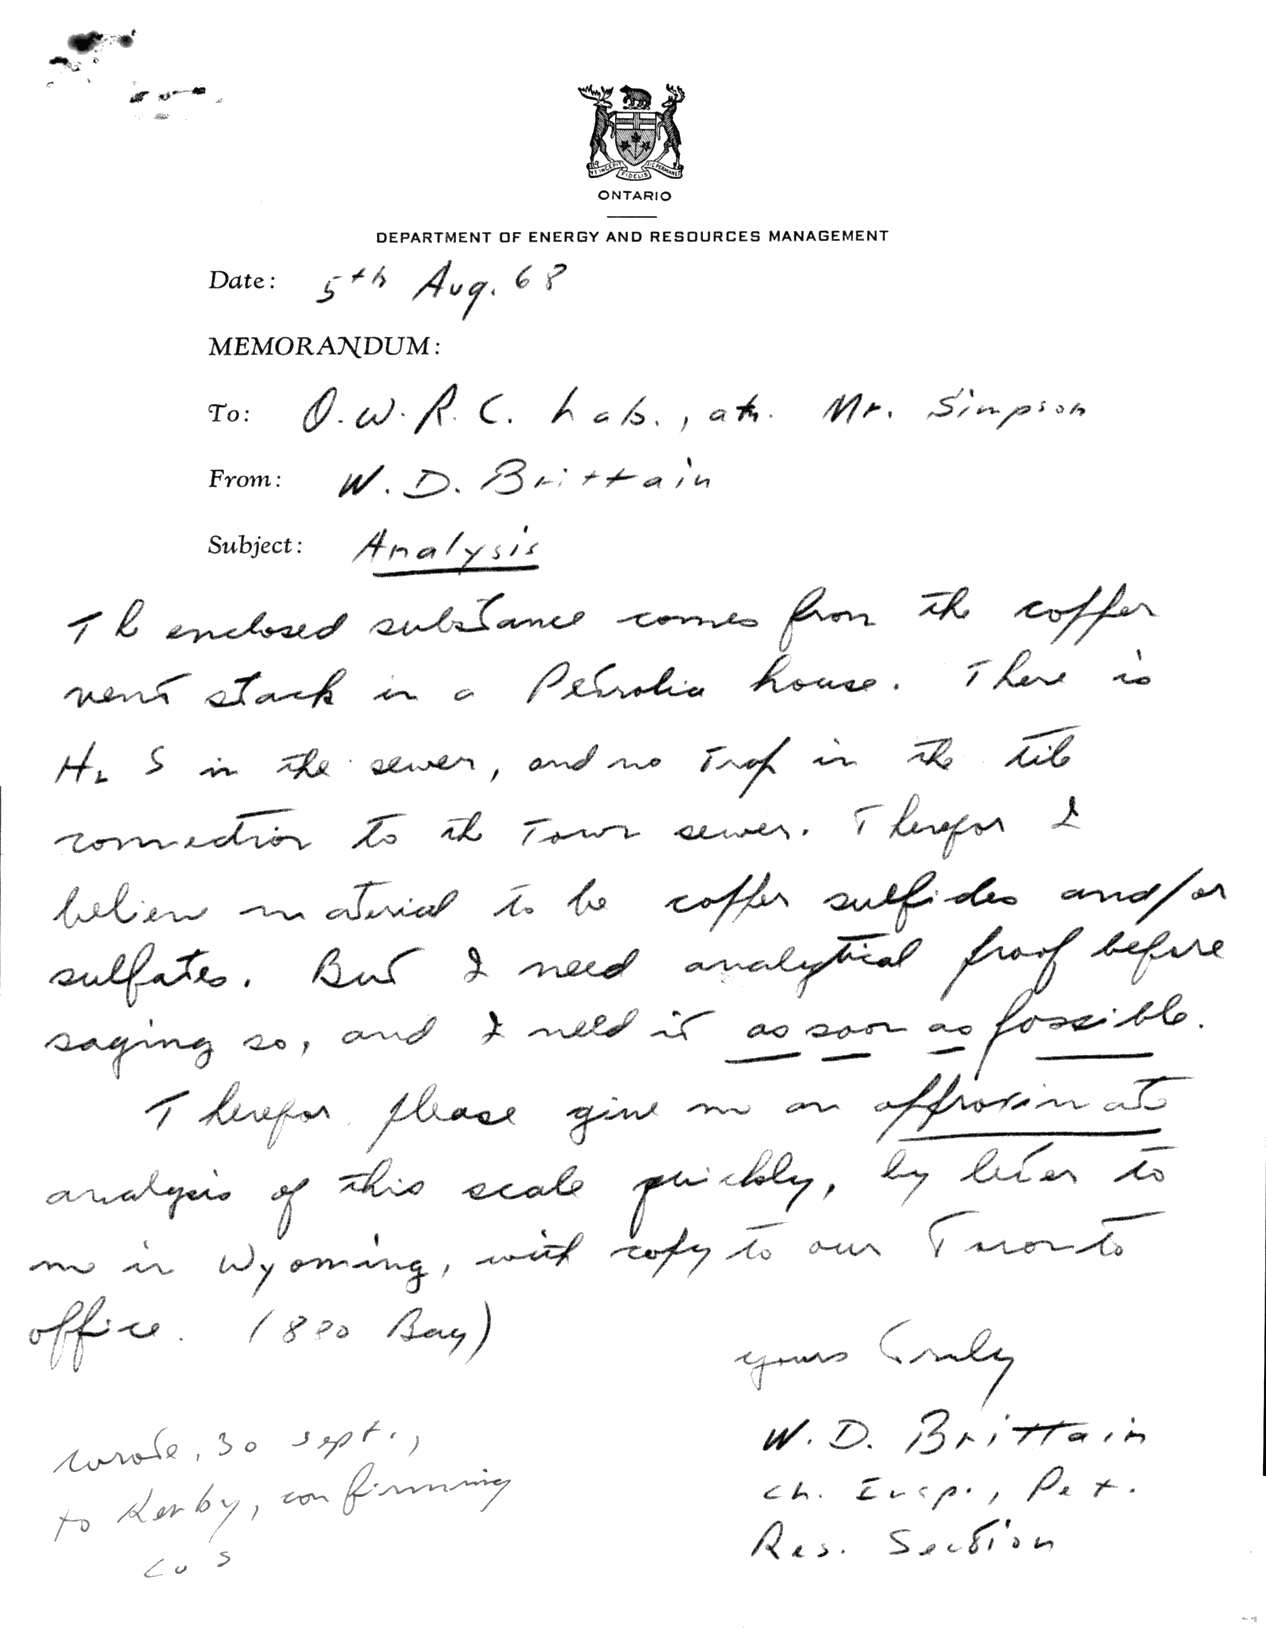 UT INCEPIT FIDELIS SIC PERMANET
ONTARIO
DEPARTMENT OF ENERGY AND RESOURCES MANAGEMENT
Date: 5th Aug. 68
MEMORANDUM:
To: O.W.R.C. Lab., attn. Mr. Simpson
From: W. D. Brittain
Subject: Analysis
The enclosed substance comes from the copper
vent stack in a Petrolia house. There is
H2S in the sewer, and no trap in the tile
connection to the Town sewer. Therefor I
believe material to be copper sulfides and/or
sulfates. But I need analytical proof before
saying so, and I need it as soon as possible.
Therefor please give me an approximate
analysis of this scale quickly, by letter to
me in Wyoming, with copy to our Toronto
office. (880 Bay)
yours truly
W. D. Brittain
Ch. Insp., Pet.
Res. Section
wrote, 30 sept.,
to Kerby, confirming
CuS